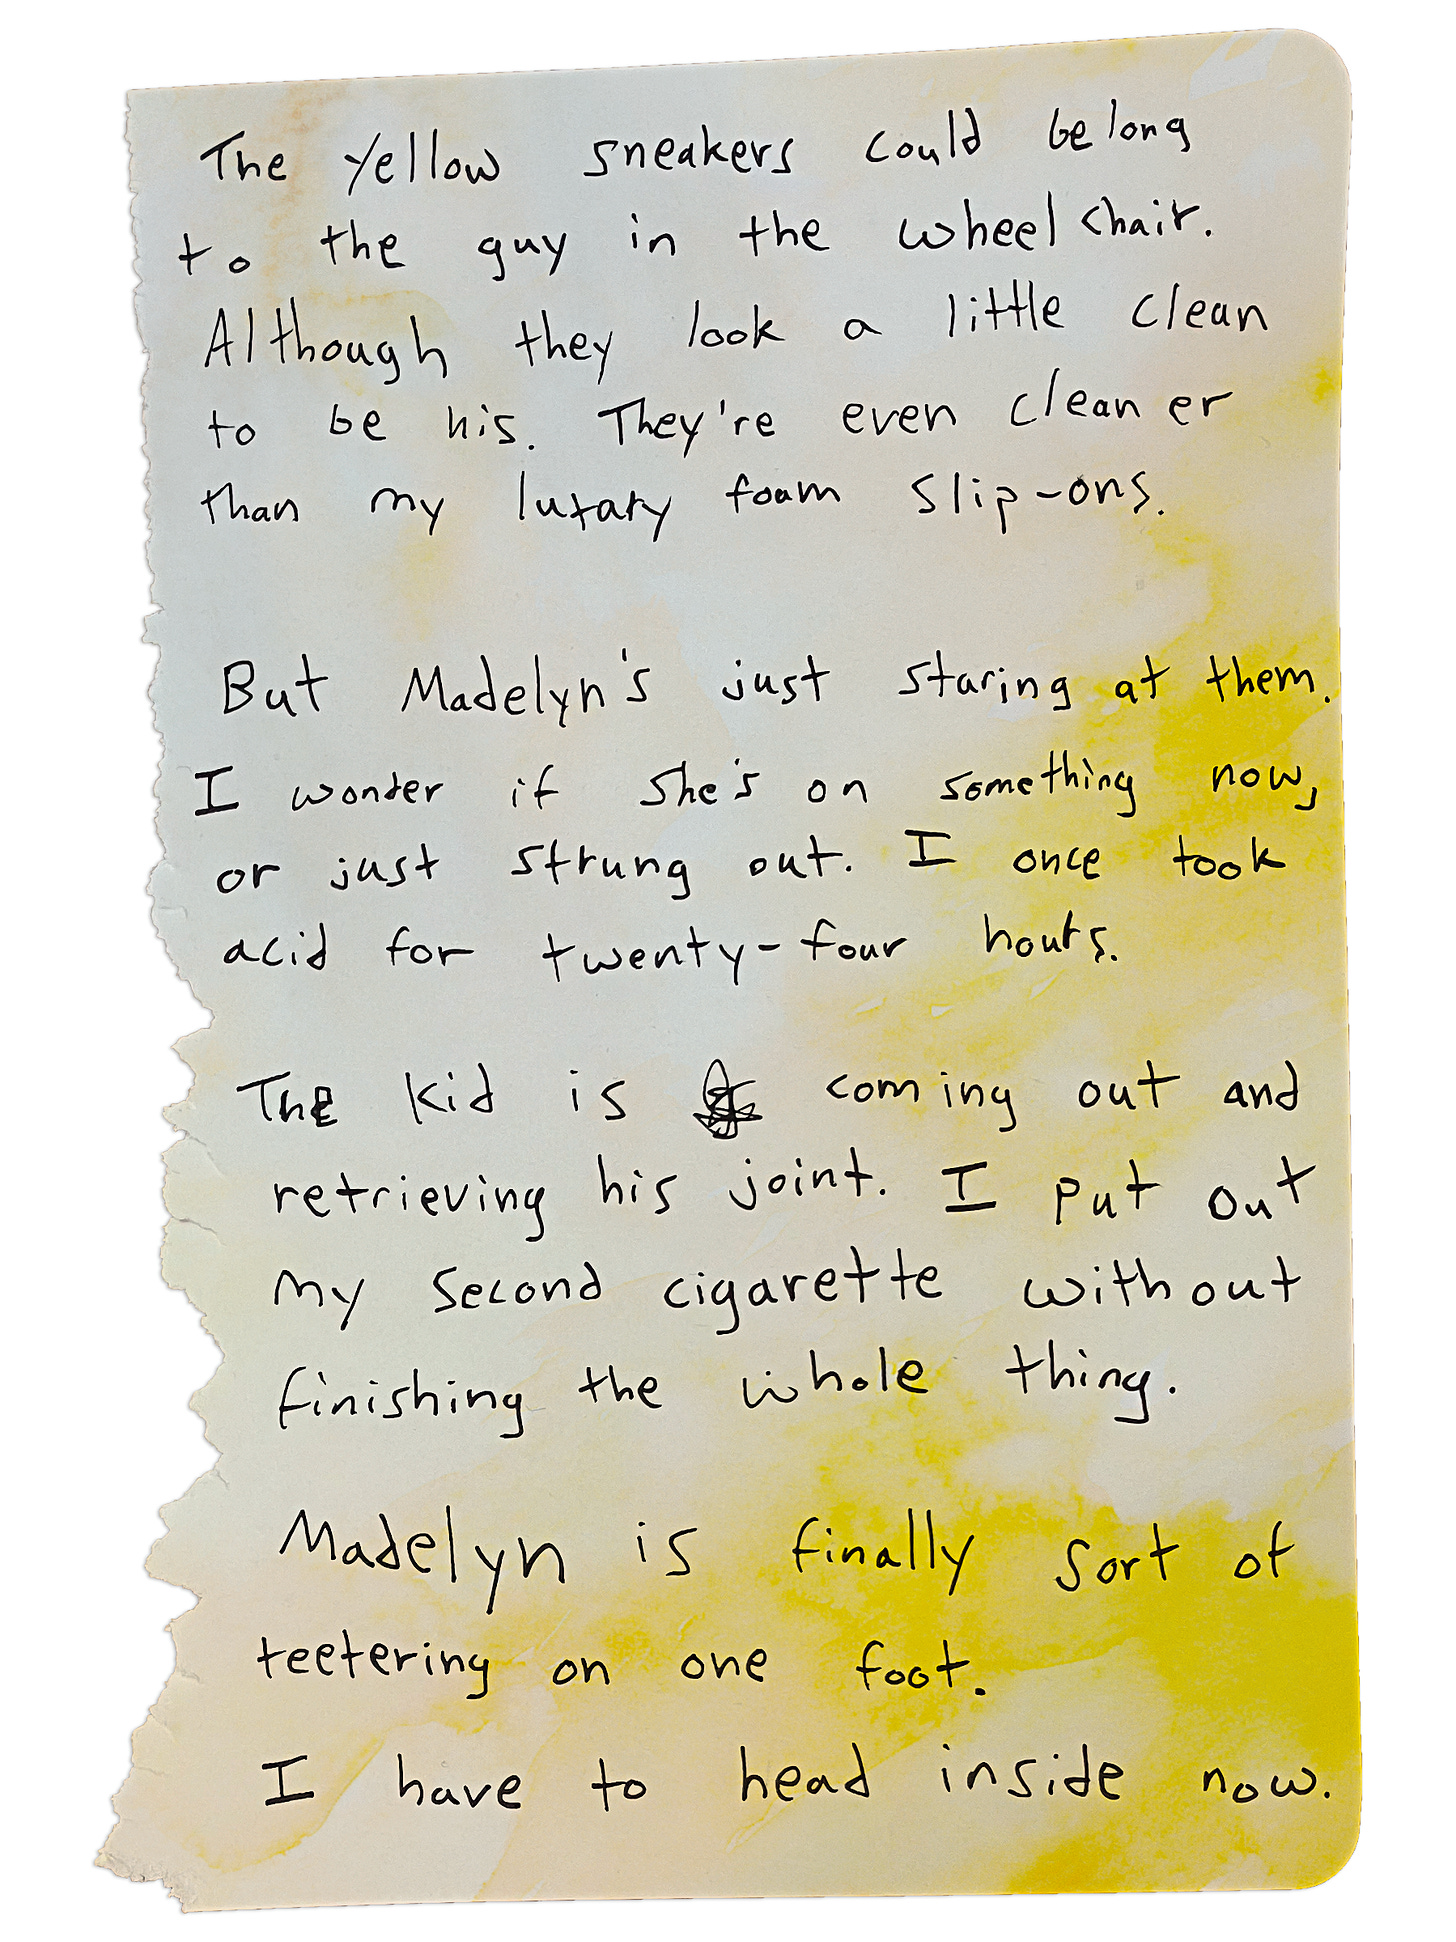 The yellow sneakers could belong
to the guy in the wheelchair.
Although they look a little clean
to be his. They're even cleaner
than my luxary foam slip-ons.
But Madelyn's just staring at them.
I wonder if she's on something now,
or just strung out. I once took
acid for twenty-four hours.
The kid is coming out and
retrieving his joint. I put out
my second cigarette without
finishing the whole thing.
Madelyn is finally sort of
teetering on one foot.
I have to head inside now.